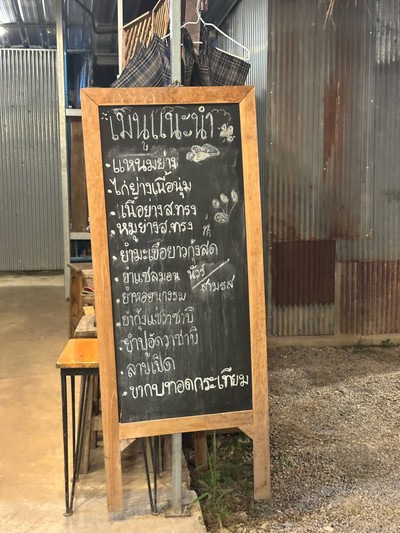 เมนูแนะนำ
• แหนมย่าง
• ไก่ย่างเนื้อนุ่ม
• เนื้อย่างส.ทรง
• หมูย่างส.ทรง
• ยำมะเขือยาวกุ้งสด
• ยำแซลมอน นัวร์/สามรส
• ยำหอยนางรม
• ยำกุ้งแช่วาซาบิ
• ยำปูอัดวาซาบิ
• ลาบเป็ด
• ขากบทอดกระเทียม